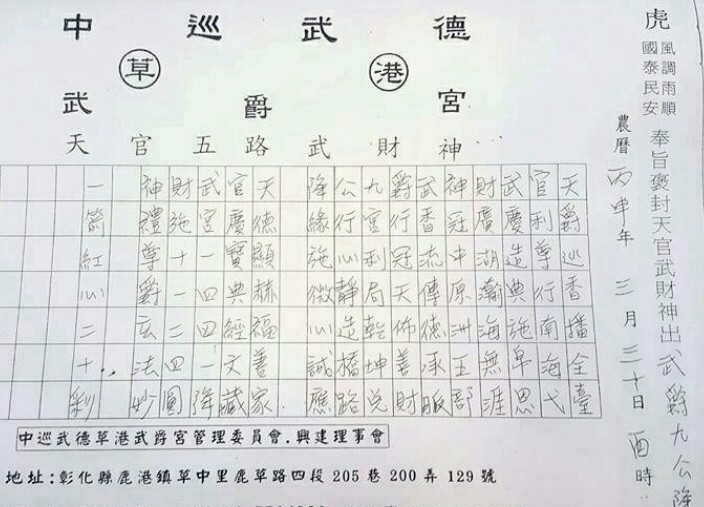 中巡武德
草港
武爵宮
天官五路武財神
虎
風調雨順
國泰民安
奉旨褒封天官武財神出武爵九公降
農曆丙申年三月三十日酉時
天爵巡香播全臺
官利尊行南海弋
武慶造典施帛恩
財廣湖瀚海無涯
神冠中原洲玉部
武香流傳德承脈
爵行冠天佈善財
九宮利局乾坤兌
公行心靜造橋路
降緣施微心誠應
天德顯赫福善家
官慶寶典經文藏
武宮一四四一降
財施十一二四圓
神禮尊爵玄法妙
一箭紅心二十彩
中巡武德草港武爵宮管理委員會.興建理事會
地址:彰化縣鹿港鎮草中里鹿草路四段205巷200弄129號